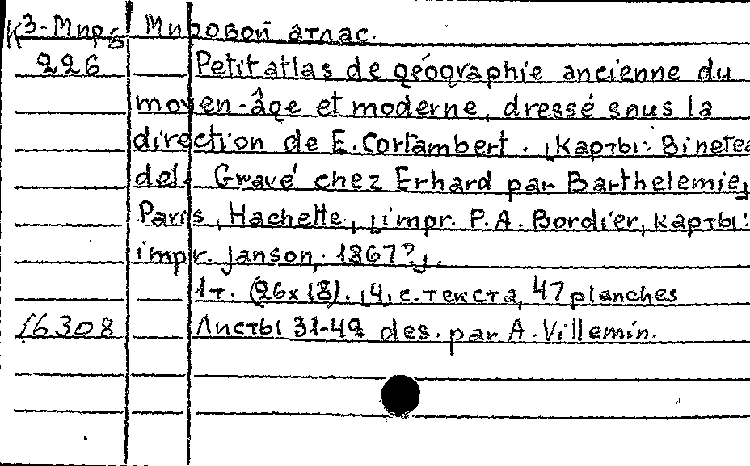 К3-Мир Мировой атлас.
226 Petit atlas de géographie ancienne du
moyen-âge et moderne, dressé sous la
direction de E. Cortambert. [Карты: Bineteau
del. Gravé chez Erhard par Barthelemie,
Paris, Hachette, [impr. P.A. Bordier, карты:
impr. Janson, 1867?].
1 т. (26x18). [4] с. текста, 47 planches
16308 Листы 31-42 des. par A. Villemin.